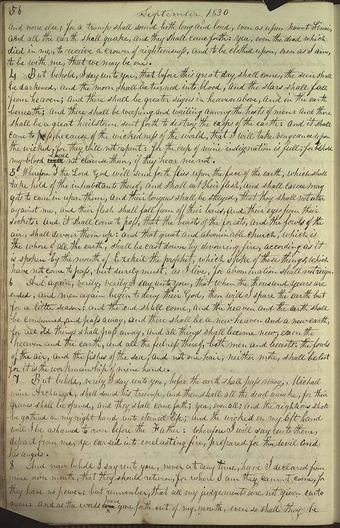 56 September 1830
and now dec; for a trump shall sound both long and loud, even as upon mount Sinai,
and all the earth shall quake, and they shall come forth: Yea, even the dead which
died in me, to receive a crown of righteousness, and to be clothed upon, even as I am,
to be with me, that we may be one.
4 But behold, I say unto you, that before this great day shall come, the sun shall
be darkened, and the moon shall be turned into blood, and the stars shall fall
from heaven; and there shall be greater signs in heaven above, and in the earth
beneath; and there shall be weeping and wailing among the hosts of men: and there
shall be a great hailstorm sent forth to destroy the crops of the earth: and it shall
come to pass, because of the wickedness of the world, that I will take vengeance upon
the wicked, for they will not repent: for the cup of mine indignation is full; for behold
my blood shall not cleanse them, if they hear me not.
5 Wherefore I the Lord God will send forth flies upon the face of the earth, which shall
take hold of the inhabitants thereof, and shall eat their flesh, and shall cause mag
gots to come in upon them, and their tongues shall be stayed, that they shall not utter
against me, and their flesh shall fall from off their bones, and their eyes from their
sockets: And it shall come to pass, that the beasts of the forests, and the fowls of the
air, shall devour them up: and that great and abominable church, which is
the whore of all the earth, shall be cast down by devouring fire, according as it
is spoken by the mouth of Ezekiel the prophet, which spoke of these things, which
have not come to pass, but surely must, as I live, for abomination shall not reign.
6 And again, verily, verily I say unto you, that when the thousand years are
ended, and men again begin to deny their God, then will I spare the earth but
for a little season: and the end shall come, and the heaven and the earth shall
be consumed, and pass away, and there shall be a new heaven and a new earth,
for all old things shall pass away, and all things shall become new, even the
heaven and the earth, and all the fulness thereof, both men and beasts: the fowls
of the air, and the fishes of the sea; and not one hair, neither mote, shall be lost
for it is the workmanship of mine hand.
7 But behold, verily I say unto you, before the earth shall pass away, Michael
mine archangel, shall sound his trump, and then shall all the dead awake, for their
graves shall be opened, and they shall come forth; yea, even all; and the righteous shall
be gathered on my right hand unto eternal life; and the wicked on my left hand
will I be ashamed to own before the Father: wherefore I will say unto them,
depart from me, ye cursed into everlasting fire, prepared for the devil and
his angels.
8 And now behold I say unto you, never at any time, have I declared from
mine own mouth, that they should return, for where I am they cannot come, for
they have no power: but remember, that all my judgements are not given unto
men: and as the words have gone forth out of my mouth, even so shall they be